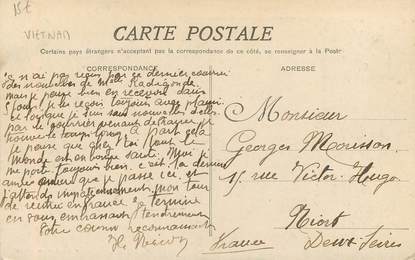 15€
VIETNAM
CARTE POSTALE
Certains pays étrangers n'acceptant pas la correspondance de ce côté, se renseigner à la Poste
CORRESPONDANCE
ADRESSE
n'ai pas reçu par ce dernier courrier
des nouvelles de Melle Radegonde
mais je pense bien en recevoir dans
jours, je les reçois toujours avec plaisir
et lorsque je suis sans nouvelles d'elles
par le courrier venant d'
trouve le temps long. A part cela
je pense que chez toi tout le
monde est en bonne santé. Moi je
me porte toujours bien, c'est la dernière
année que je passe ici, et
j'attends impatiemment mon tour
de rentrer en france. Je termine
en vous embrassant tendrement
Votre cousin reconnaissant
Monsieur
Georges
15 rue Victor-Hugo
Niort
Deux-Sèvres
France